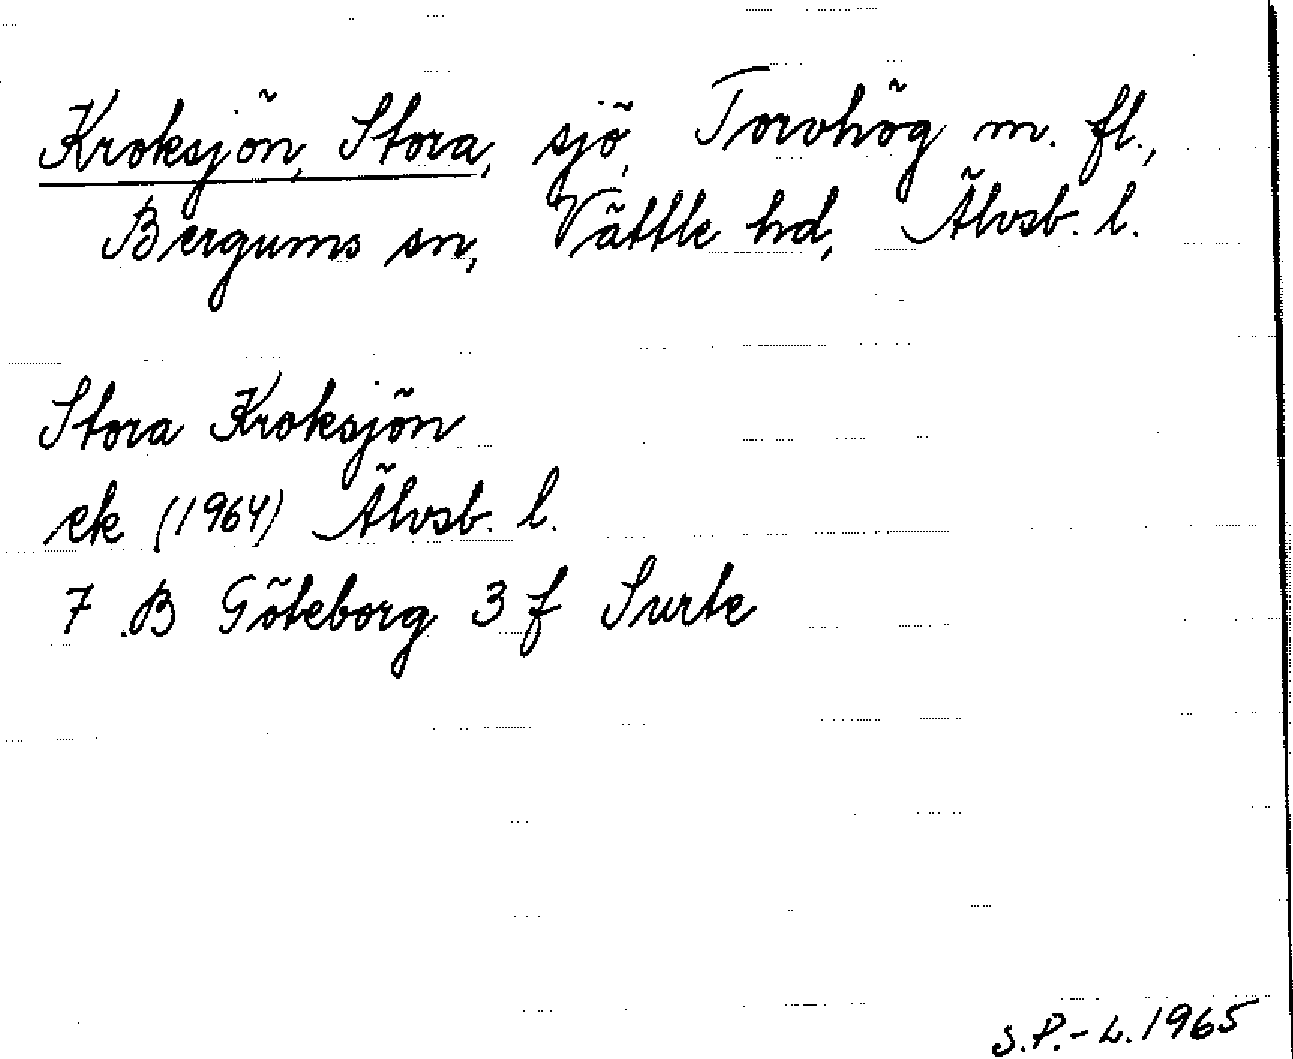 Kroksjön, Stora, sjö, Torvhög m. fl.,
Bergums sn, Vättle hd, Älvsb. l.
Stora Kroksjön
ek (1964) Älvsb. l.
7 B Göteborg 3 f Surte
S.P.-L. 1965